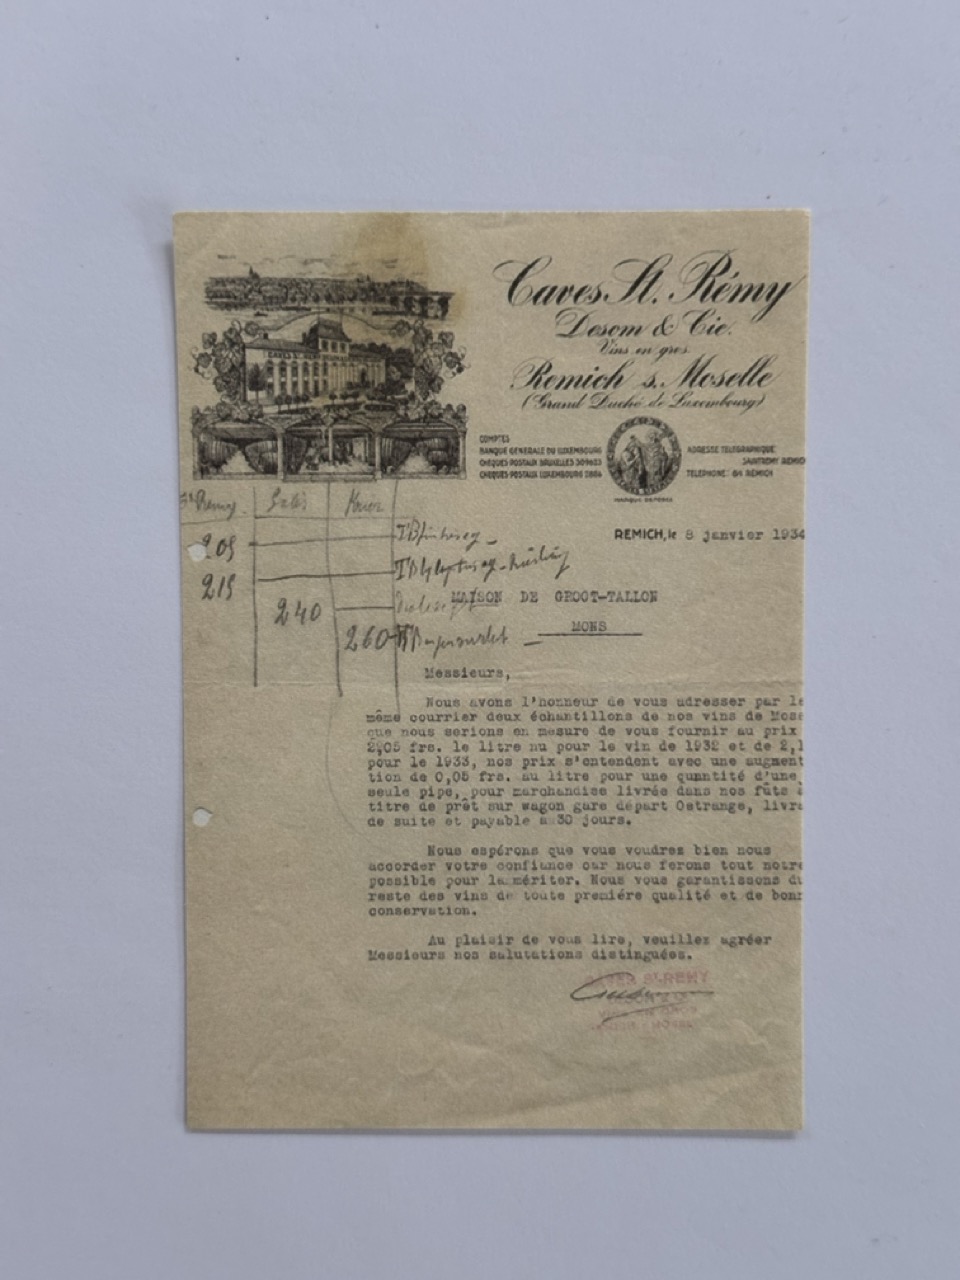 Caves St. Rémy
Desom & Cie.
Vins en gros.
Remich s. Moselle
(Grand Duché de Luxembourg)
CAVES ST. REMY
COMPTES
BANQUE GENERALE DU LUXEMBOURG
CHEQUES POSTAUX BRUXELLES 309683
CHEQUES POSTAUX LUXEMBOURG 2886
ADRESSE TELEGRAPHIQUE
SAINTREMY REMICH
TELEPHONE 64 REMICH
MARQUE DEPOSEE
St Remy
REMICH, le 8 janvier 1934
205
215
240
260
MAISON DE GROOT-TALLON
MONS
Messieurs,
Nous avons l'honneur de vous adresser par le
même courrier deux échantillons de nos vins de Mose
que nous serions en mesure de vous fournir au prix
2,05 frs. le litre nu pour le vin de 1932 et de 2,1
pour le 1933, nos prix s'entendent avec une augment
tion de 0,05 frs. au litre pour une quantité d'une
seule pipe, pour marchandise livrée dans nos fûts à
titre de prêt sur wagon gare départ Oetrange, livra
de suite et payable a 30 jours.
Nous espérons que vous voudrez bien nous
accorder votre confiance car nous ferons tout notre
possible pour la mériter. Nous vous garantissons du
reste des vins de toute première qualité et de bonn
conservation.
Au plaisir de vous lire, veuillez agréer
Messieurs nos salutations distinguées.
CAVES St REMY